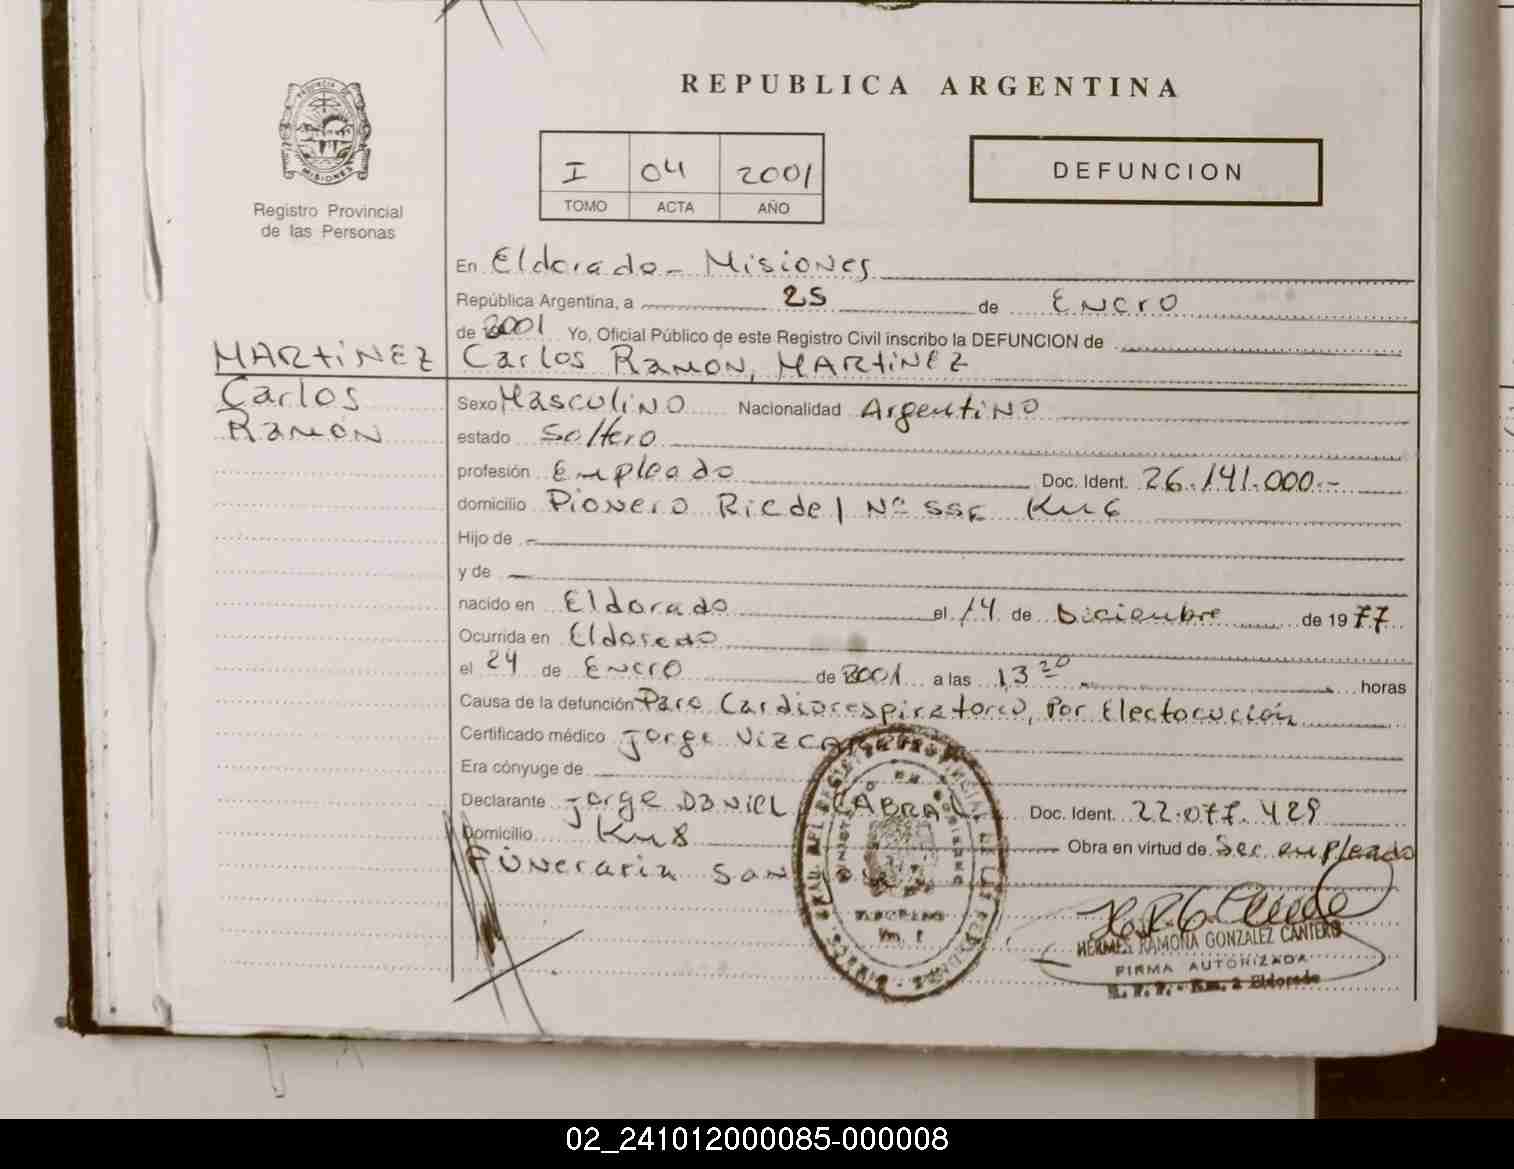 REPUBLICA ARGENTINA
I 04 2001
TOMO ACTA AÑO
DEFUNCION
PROVINCIA DE
MISIONES
Registro Provincial
de las Personas
En Eldorado - Misiones
República Argentina, a 25 de Enero
de 2001 Yo, Oficial Público de este Registro Civil inscribo la DEFUNCION de
MARTINEZ Carlos Ramon, MARTINEZ
Carlos
Ramon
Sexo Masculino Nacionalidad Argentino
estado Soltero
profesión Empleado Doc. Ident. 26.141.000.-
domicilio Pionero Riedel Nº Km 6
Hijo de -
y de -
nacido en Eldorado el 14 de Diciembre de 1977
Ocurrida en Eldorado
el 24 de Enero de 2001 a las 13 20 horas
Causa de la defunción Paro Cardiorespiratorio, Por Electocución
Certificado médico Jorge
Era cónyuge de
Declarante Jorge Daniel CABRAL Doc. Ident. 22.077.429
Domicilio Km 8 Obra en virtud de Ser empleado
Funeraria San
HERMES RAMONA GONZALEZ CANTERO
FIRMA AUTORIZADA
R. P. P. - Km. 2 Eldorado
02_241012000085-000008